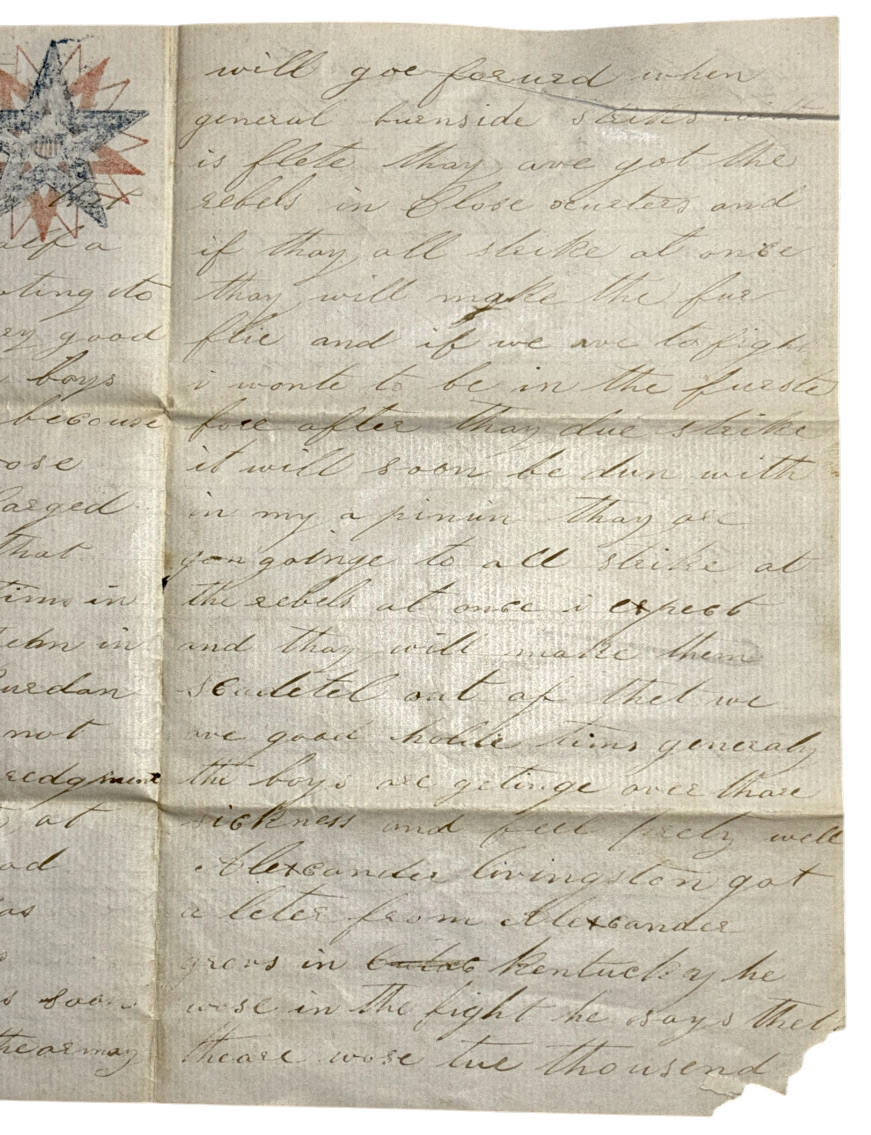 alf a
oting to
ey good
boys
because
ose
arged
that
tims in
in
urdan
not
redgment
at
ad
as
s soon
the armay
will goe forurd when
general burnside strikes with
is flete thay ave got the
rebels in Close qurters and
if thay all strike at once
thay will make the fur
flie and if we are to figh
i wonte to be in the furste
fore after thay due strike
it will soon be dun with
in my a pinun thay are
gon goinge to all strike at
the rebels at once i expect
and thay will make them
scadetel out of thet we
ave good holde tims generaly
the boys are getinge over thare
sickness and feel prety well
Alexcander livingston got
a leter from Alexcander
grevs in Kentuckey he
wose in the fight he says thet
theare wose tue thousend